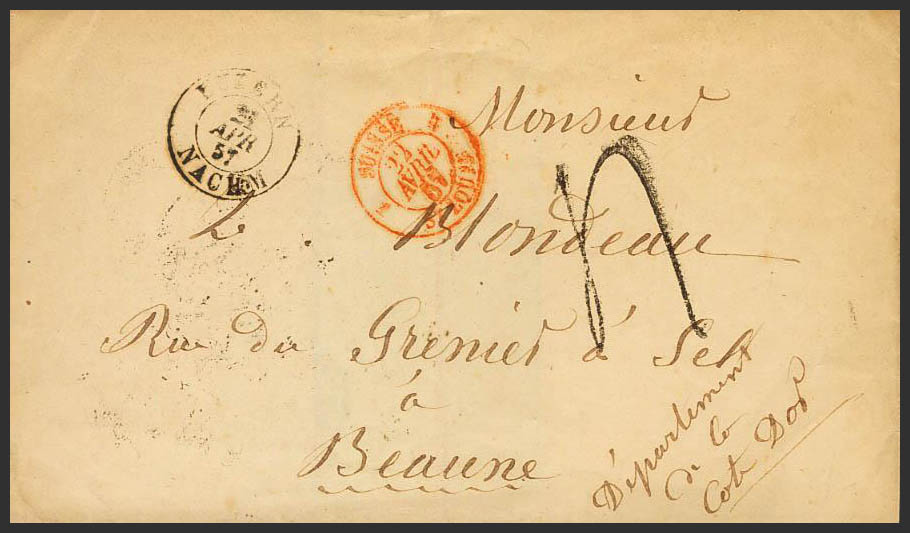 LUZERN
APR
57
NACHM
SUISSE
22
AVRIL
57
Monsieur
L. Blondeau
Rue du Grenier à Sel
à
Beaune
Département
de la
Cote Dor